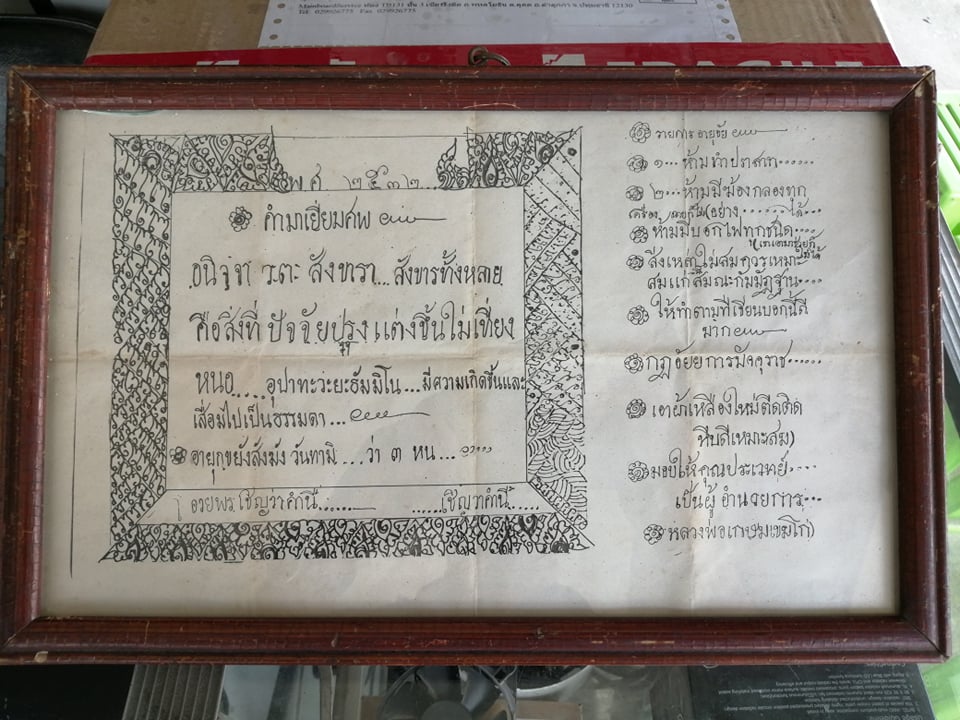 MainboardService ห้อง
Tel: 029926775 Fax. 029926775
FRAGILE
พ.ศ. ๒๕๓๒
คำมาเยี่ยมศพ
อนิจจา วะตะ สังขารา... สังขารทั้งหลาย
คือสิ่งที่ ปัจจัยปรุง แต่งขึ้นไม่เที่ยง
หนอ.... อุปาทะวะยะธัมมิโน.... มีความเกิดขึ้นและ
เสื่อมไปเป็นธรรมดา...
อายุกขยังสังมัง วันทามิ.... ว่า ๓ หน...
เชิญว่าคำนี้.........
......เชิญว่าคำนี้.....
รายการ อายุขัย
๑... ห้ามทำปราสาท......
๒... ห้ามมีฆ้องกลองทุก
อย่าง.......ได้...
ห้ามมีบอกไฟทุกชนิด..
สิ่งเหล่านี้ไม่สมควรเหมาะ
สมแก่สมณะกัมมัฏฐาน....
ให้ทำตามที่เขียนบอกนี้ดี
มาก
กฎอัยยการมัจจุราช......
เอาผ้าเหลืองใหม่ตืดติด
หีบดีเหมาะสม)
มอบให้คุณประเวทย์....
เป็นผู้ อำนวยการ...
หลวงพ่อเกษมเขมิโก)